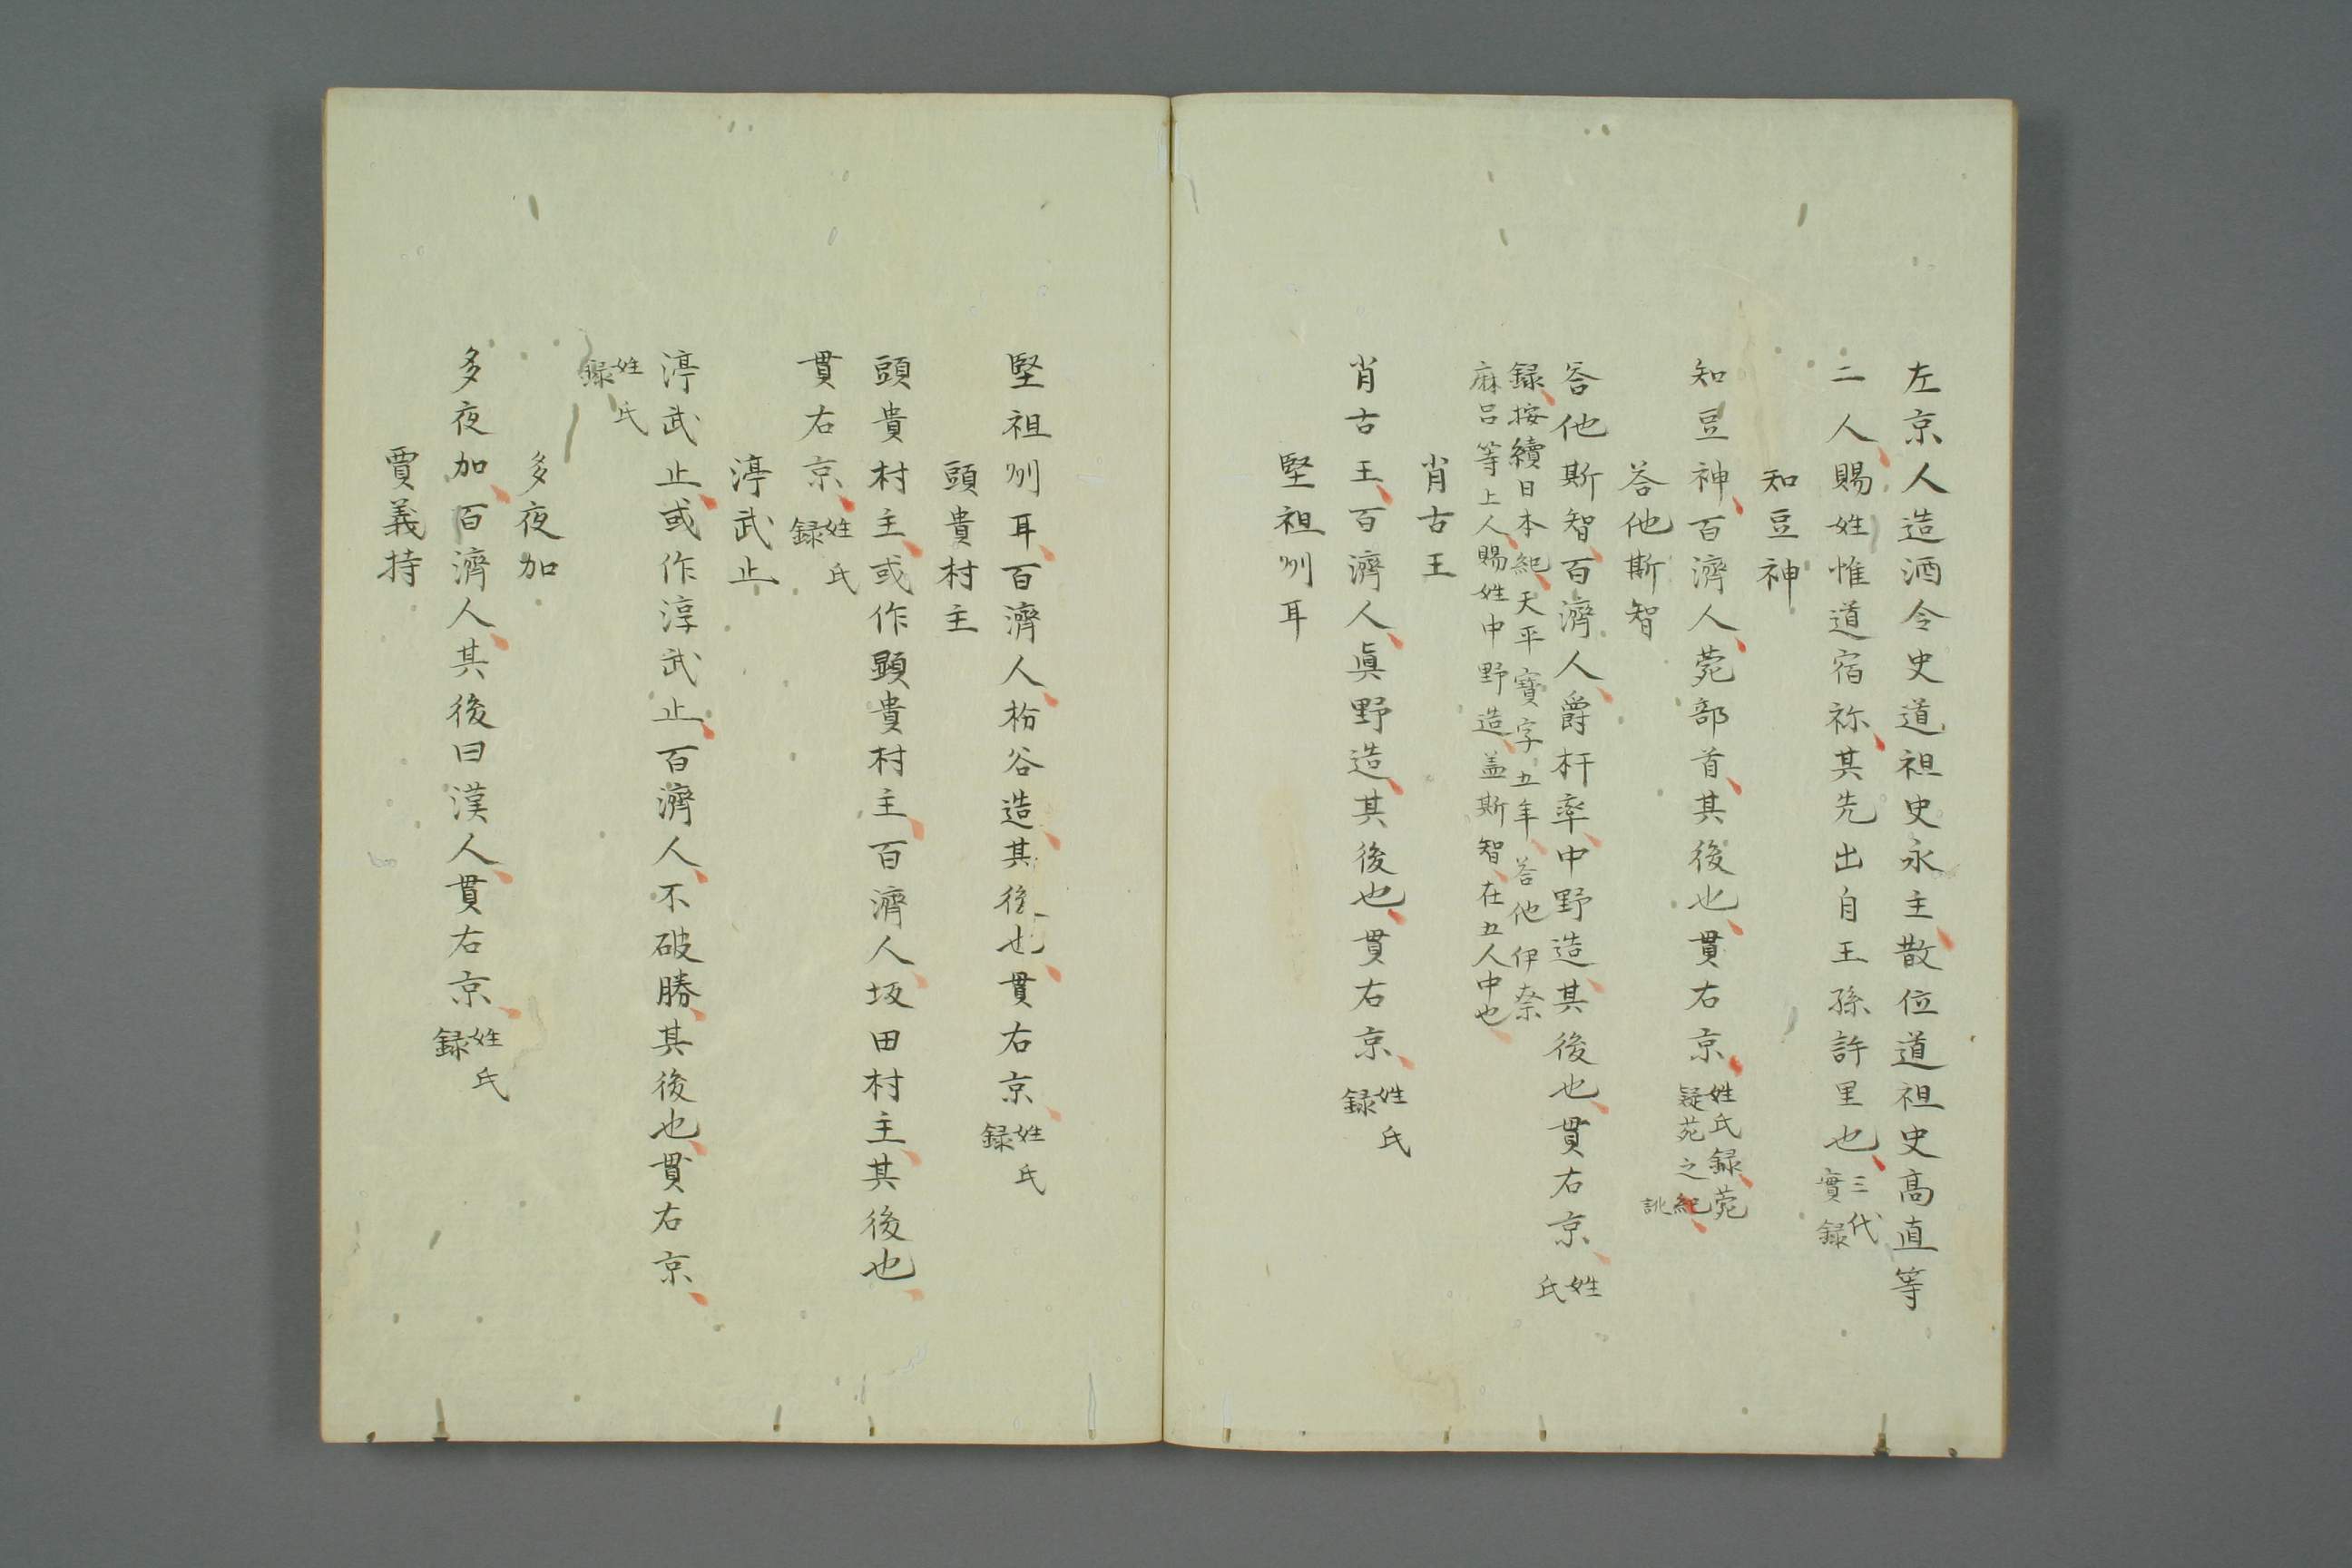 左京人造酒令史道祖史永主散位道祖史高直等
二人賜姓惟道宿祢其先出自王孫許里也三代實錄
知豆神
知豆神百濟人菀部首其後也貫右京姓氏録菀疑苑之訛
荅他斯智
荅他斯智百濟人爵杆率中野造其後也貫右京姓氏
録按續日本紀天平寶字五年荅他伊奈
麻呂等上人賜姓中野造盖斯智在五人中也
肖古王
肖古王百濟人眞野造其後也貫右京姓氏録
堅祖州耳
堅祖州耳百濟人枌谷造其後也貫右京姓氏録
頭貴村主
頭貴村主或作顕貴村主百濟人坂田村主其後也
貫右京姓氏録
渟武止
渟武止或作淳武止百濟人不破勝其後也貫右京
姓氏録
多夜加
多夜加百濟人其後曰漢人貫右京姓氏録
賈義持